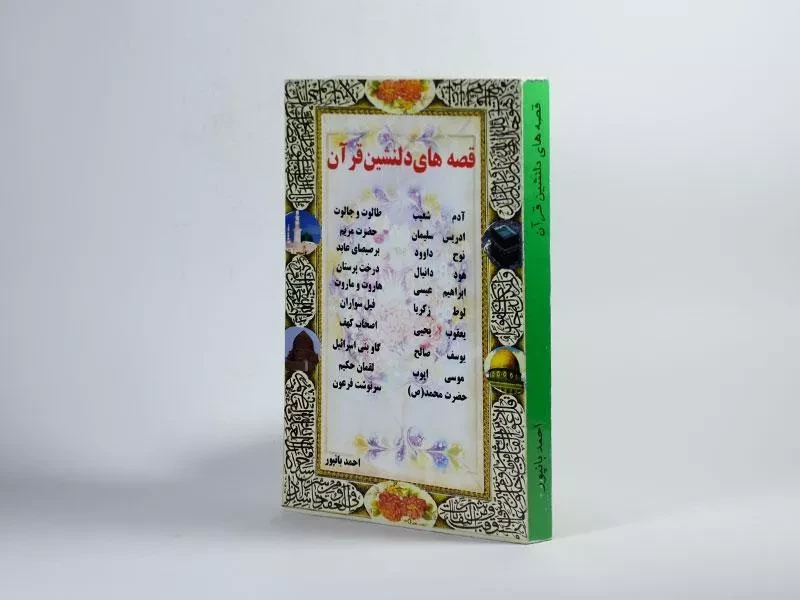 قصه های دلنشین قرآن
آدم شعیب طالوت و جالوت
ادریس سلیمان حضرت مریم
نوح داوود برصیصای عابد
هود دانیال درخت پرستان
ابراهیم عیسی هاروت و ماروت
لوط زکریا فیل سواران
یعقوب یحیی اصحاب کهف
یوسف صالح گاو بنی اسرائیل
موسی ایوب لقمان حکیم
حضرت محمد(ص) سرنوشت فرعون
احمد بانپور
قصه های دلنشین قرآن
احمد بانپور